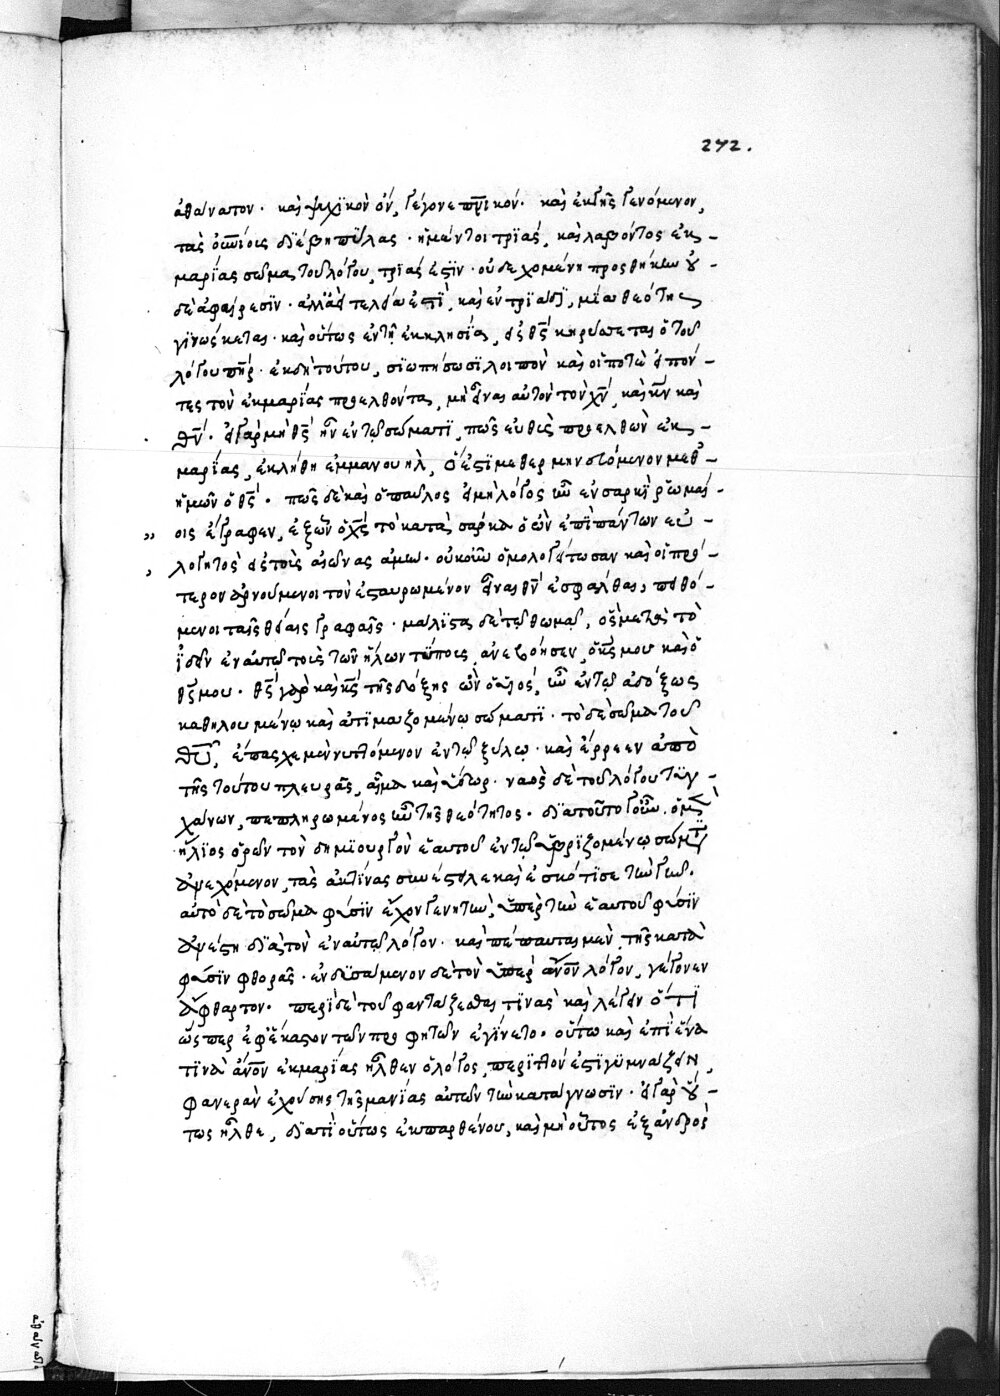 272.
ἀθάνατον· καὶ ψυχϊκὸν ὀν, γέγονε πν̅ικόν· καὶ ἐκ γῆς γενόμενον,
τὰς οὐνίοις διέβη πύλας· ἡ μέντοι τρϊὰς, καὶ λαβόντος ἐκ
μαρίας σῶμα τοῦ λόγου, τρϊάς ἐστϊν· οὐ δεχομένη προσθήκην οὐ
δὲ ἀφαίρεσϊν· ἀλλ' ἀεὶ τελεία ἐστὶ, καὶ ἐν τρϊάδϊ, μία θεότης
γϊνώσκεται· καὶ οὕτως ἐν τῇ ἐκκλησίᾳ, εἷς θς̅ κηρύσσεται ὁ τοῦ
λόγου πη̅ρ· ἐκ δὴ τούτου, σϊωπήσωσϊ λοιπὸν καὶ οἵ ποτὲ εἰπόν
τες τὸν ἐκ μαρίας προελθόντα, μὴ εἶναι αὐτὸν τὸν χν̅, καὶ κν̅ καὶ
θν̅· εἰ γὰρ μὴ θς̅ ἦν ἐν τῷ σώματϊ, πῶς εὐθὺς προελθὼν ἐκ
μαρίας, ἐκλήθη ἐμμανουὴλ, ὅ ἐστϊ μεθερμηνευόμενον μεθ'
ἡμῶν ὁ θς̅· πῶς δὲ καὶ ὁ παῦλος εἰ μὴ λόγος ἦν ἐν σαρκὶ ῥωμαί
οις ἔγραφεν, ἐξ ὧν ὁ χς̅ τὸ κατὰ σάρκα ὁ ὢν ἐπὶ πάντων εὐ
λογητὸς εἰς τοὺς αἰῶνας ἀμήν· οὐκοῦν ὁμολογείτωσαν καὶ οἱ πρό
τερον ἀρνούμενοι τὸν ἐσταυρωμένον εἶναι θν̅ ἐσφάλθαι, πειθό
μενοι ταῖς θείαις γραφαῖς· μάλϊστα δὲ τῷ θωμᾷ, ὃς μετὰ τὸ
ἰδεῖν ἐν αὐτῷ τοὺς τῶν ἥλων τύπους, ἀνεβόησεν, ὁ κς̅ μου καὶ ὁ
θς̅ μου· θς̅ γὰρ καὶ κς̅ τῆς δόξης ὢν ὁ υἱός, ἦν ἐν τῷ ἀδόξως
καθηλουμένῳ καὶ ἀτϊμαζομένῳ σώματϊ· τὸ δὲ σῶμα τοῦ
θυ̅, ἔπασχε μὲν νυττόμενον ἐν τῷ ξύλῳ· καὶ ἔρρεεν ἀπὸ
τῆς τούτου πλευρᾶς, αἷμα καὶ ὕδωρ· ναὸς δὲ τοῦ λόγου τυγ
χάνων, πεπληρωμένος ἦν τῆς θεότητος· διὰ τοῦτο γοῦν, ὁ μὲν
ἥλϊος ὁρῶν τὸν δημϊουργὸν ἑαυτοῦ ἐν τῷ ὑβρϊζομένῳ σώματϊ
ἀνεχόμενον, τὰς ἀκτῖνας συνέστειλε καὶ ἐσκότϊσε τὴν γῆν·
αὐτὸ δὲ τὸ σῶμα φύσϊν ἔχον γενητὴν, ὑπὲρ τὴν ἑαυτοῦ φύσϊν
ἀνέστη διὰ τὸν ἐν αὐτῷ λόγον· καὶ πέπαυται μὲν, τῆς κατὰ
φύσϊν φθορᾶς· ἐνδυσάμενον δὲ τὸν ὑπὲρ ἄνο̅ν λόγον, γέγονεν
ἄφθαρτον· περὶ δὲ τοῦ φαντάζεσθαί τϊνας καὶ λέγειν ὅτϊ
ὥσπερ ἐφ' ἕκαστον τῶν προφητῶν ἐγίνετο· οὕτω καὶ ἐπὶ ἕνα
τϊνὰ ἄνο̅ν ἐκ μαρίας ἦλθεν ὁ λόγος, περιττόν ἐστϊ γυμνάζειν,
φανερὰν ἐχούσης τῆς μανίας αὐτῶν τὴν κατάγνωσϊν· εἰ γὰρ οὕ
τως ἦλθε, διατὶ οὕτως ἐκ παρθένου, καὶ μὴ οὗτος ἐξ ἀνδρὸς